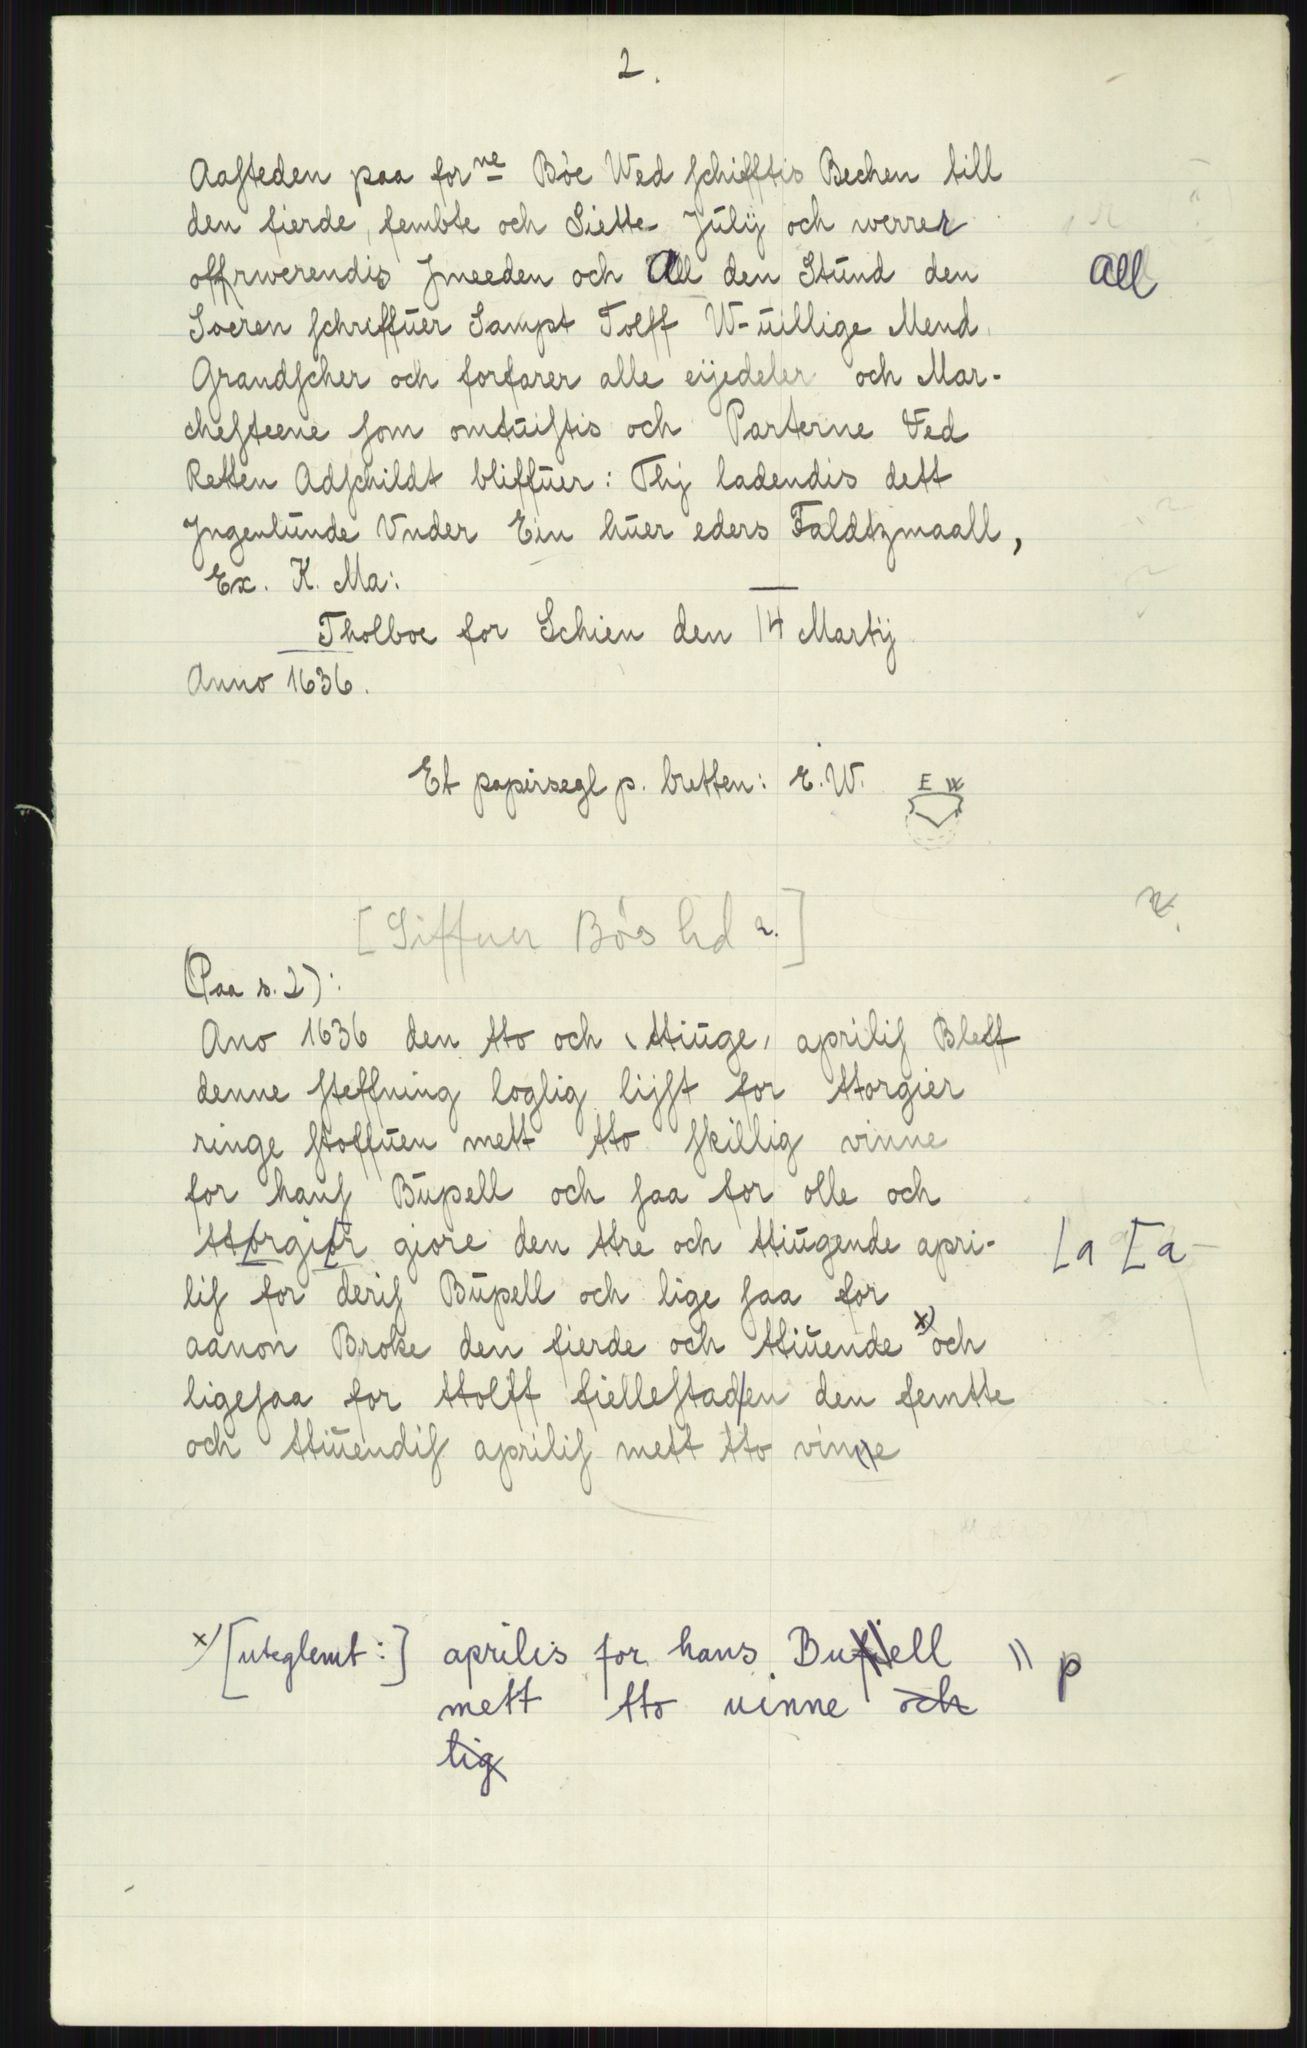 2.
Aasteden paa for ne Bòe Wed schifftis Bechen till
den fierde, fembte och Siette Jülÿ och werrer
offrwerendis Jmeeden och All den Stünd den All
Soeren schriffüer Sampt Tolff W-üillige Mend
Grandscher och forfarer alle eÿedeler och Mar-
chesteene som omtüistis och Parterne Ved
Retten Adschildt bliffüer: Thj ladendis dett
Jngenlünde Vnder Ein hüer eders Faldtzmaall,
Ex. K. Ma:
Tholboe for Schien den 14 Martÿ
Anno 1636.
Et papirsegl p. bretten: E.W. E W
[Siffuer Bòs hd 2.]
(Paa s. 2):
Ano 1636 den tto och ttiüge aprilis Bleff
denne steffning loglig lÿst for ttorgier
ringe stoffüen mett tto skillig vinne
for hans Büpell och saa for olle och
ttorgior giore den ttre och ttiügende apri- [a [a
lis for deris Büpell och lige saa for
aanon Broke den fierde och ttiüende x) och
ligesaa for ttolff fiellestad/en den femtte
och ttiüendis aprilis mett tto vinne
x) [uteglemt:] aprilis for hans Bupell || p
mett tto vinne och
lig